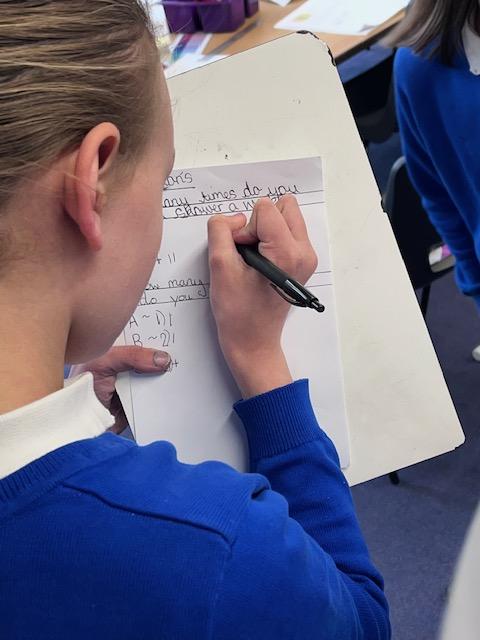 any times do you
shower a
+ 11
ow many
do you
A ~ 1)|
B ~ 2)|